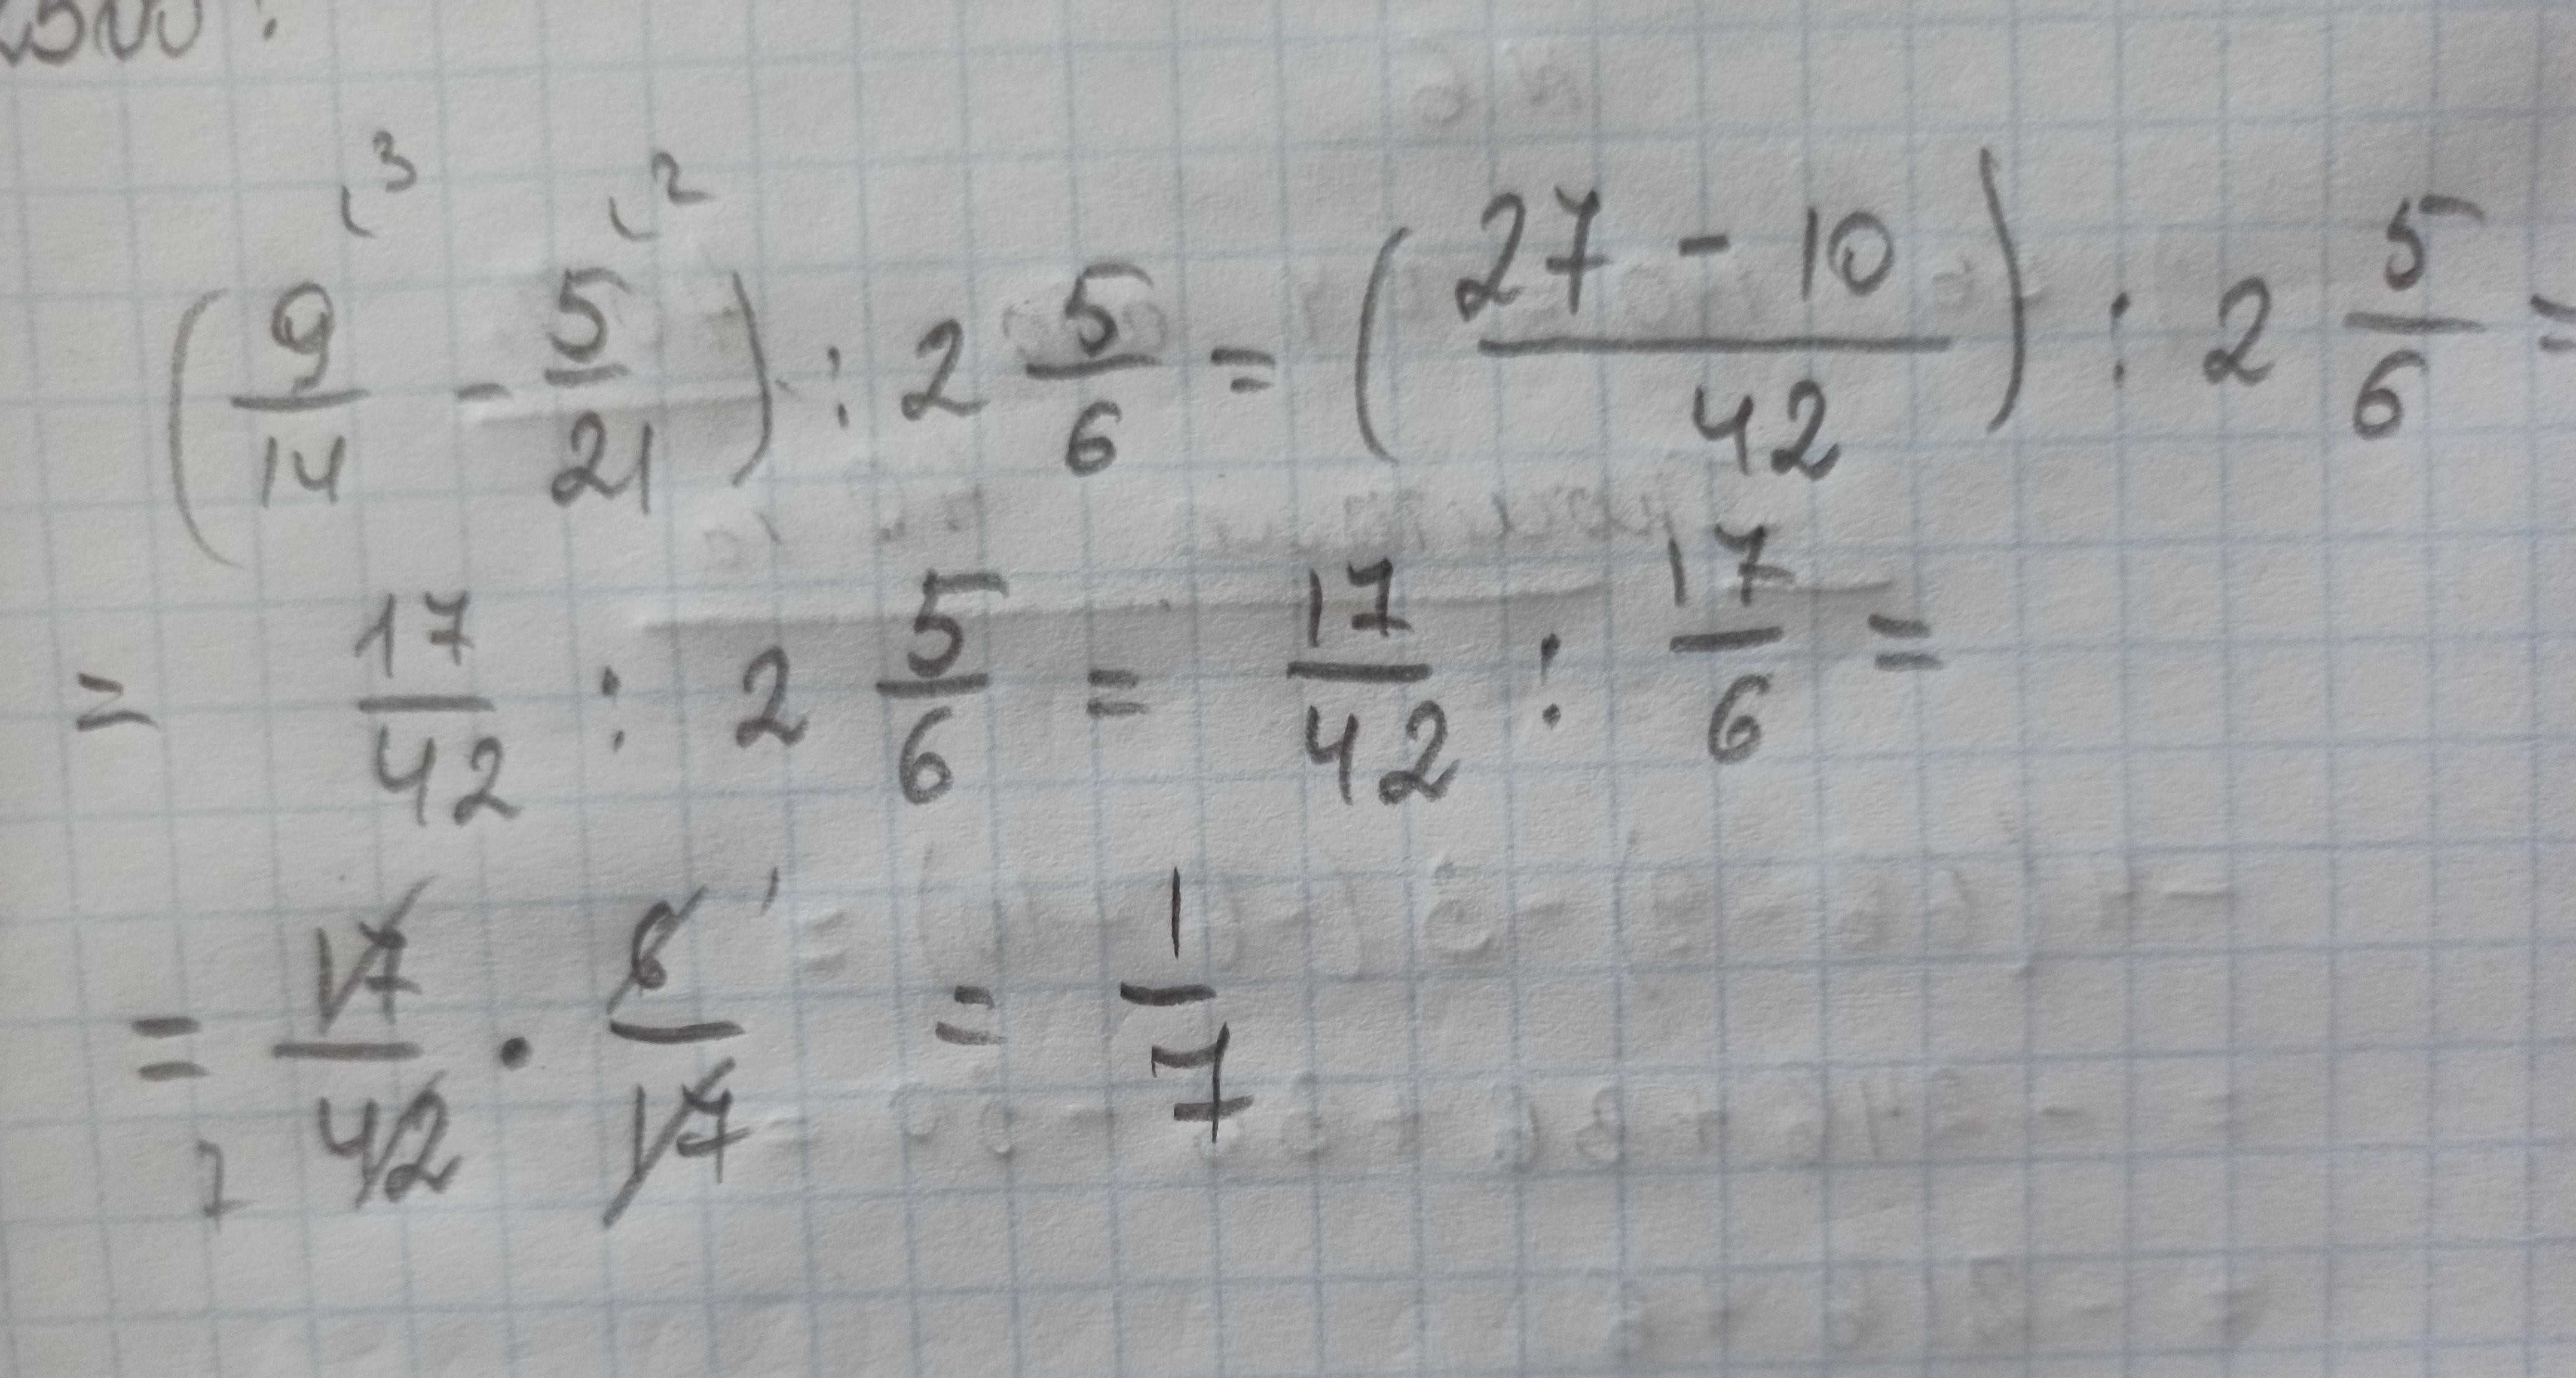 (9/14 ³ - 5/21 ²) : 2 5/6 = (27 - 10 / 42) : 2 5/6 =
= 17/42 : 2 5/6 = 17/42 : 17/6 =
= 17/42 7 · 6/17 1 = 1/7